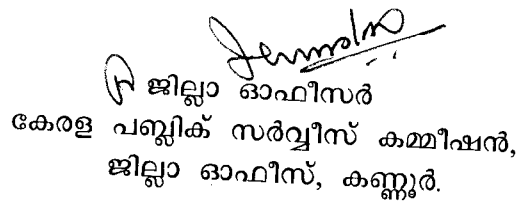 ജില്ലാ ഓഫീസർ
കേരള പബ്ലിക് സർവ്വീസ് കമ്മീഷൻ,
ജില്ലാ ഓഫീസ്, കണ്ണൂർ.